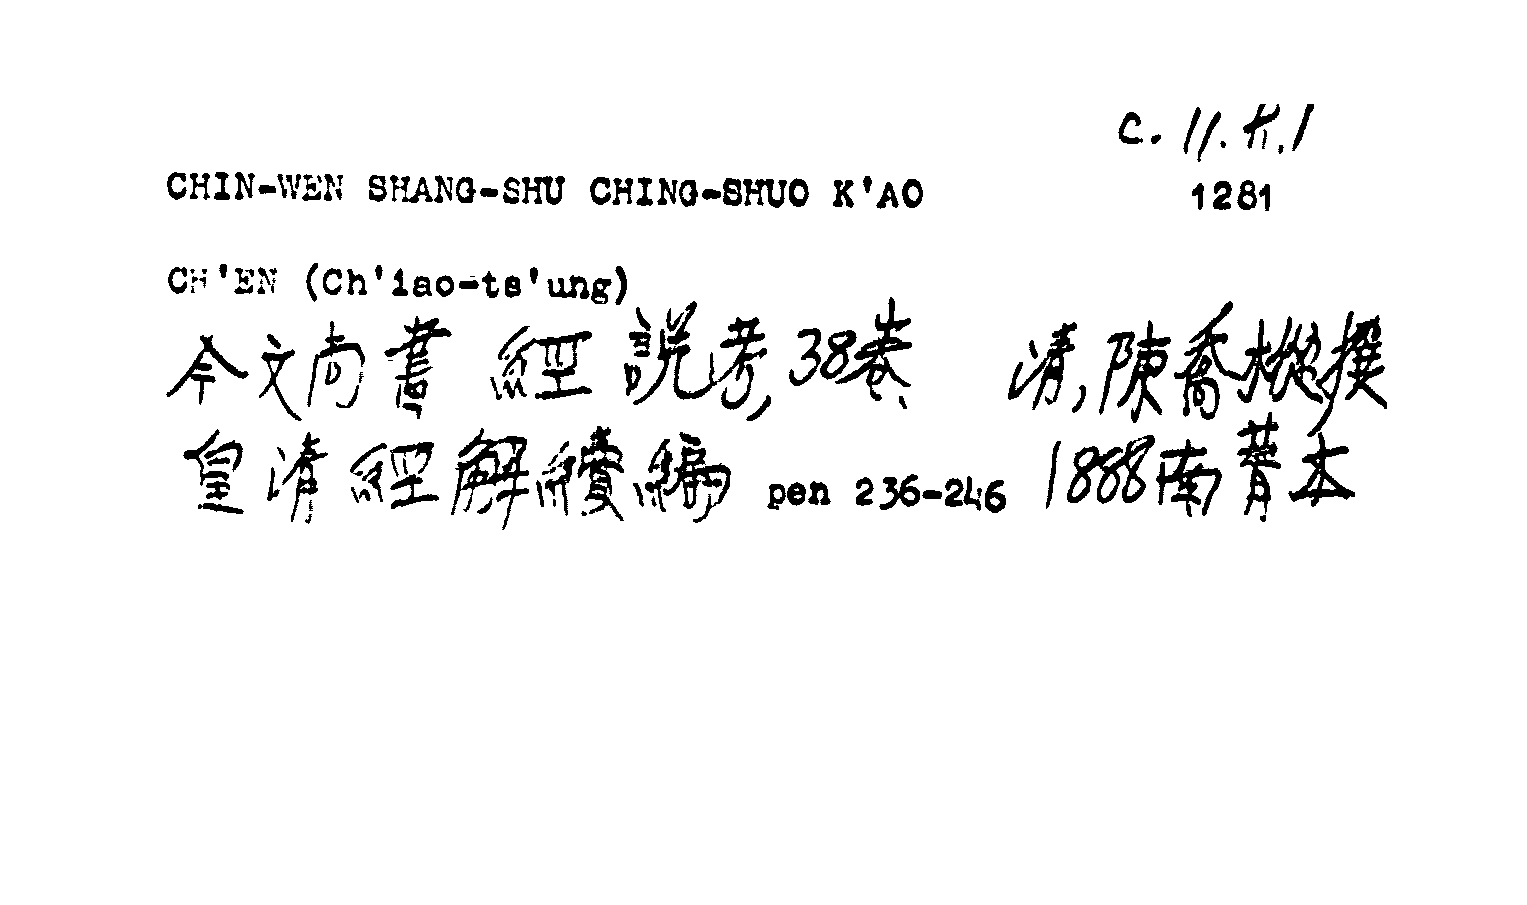 C. 11. π.1
CHIN-WEN SHANG-SHU CHING-SHUO K'AO 1281
CH'EN (Ch'iao-ts'ung)
今文尚書 經 說考, 38卷、 清, 陳喬樅撰
皇清經解續編 pen 236-246 1888南菁本